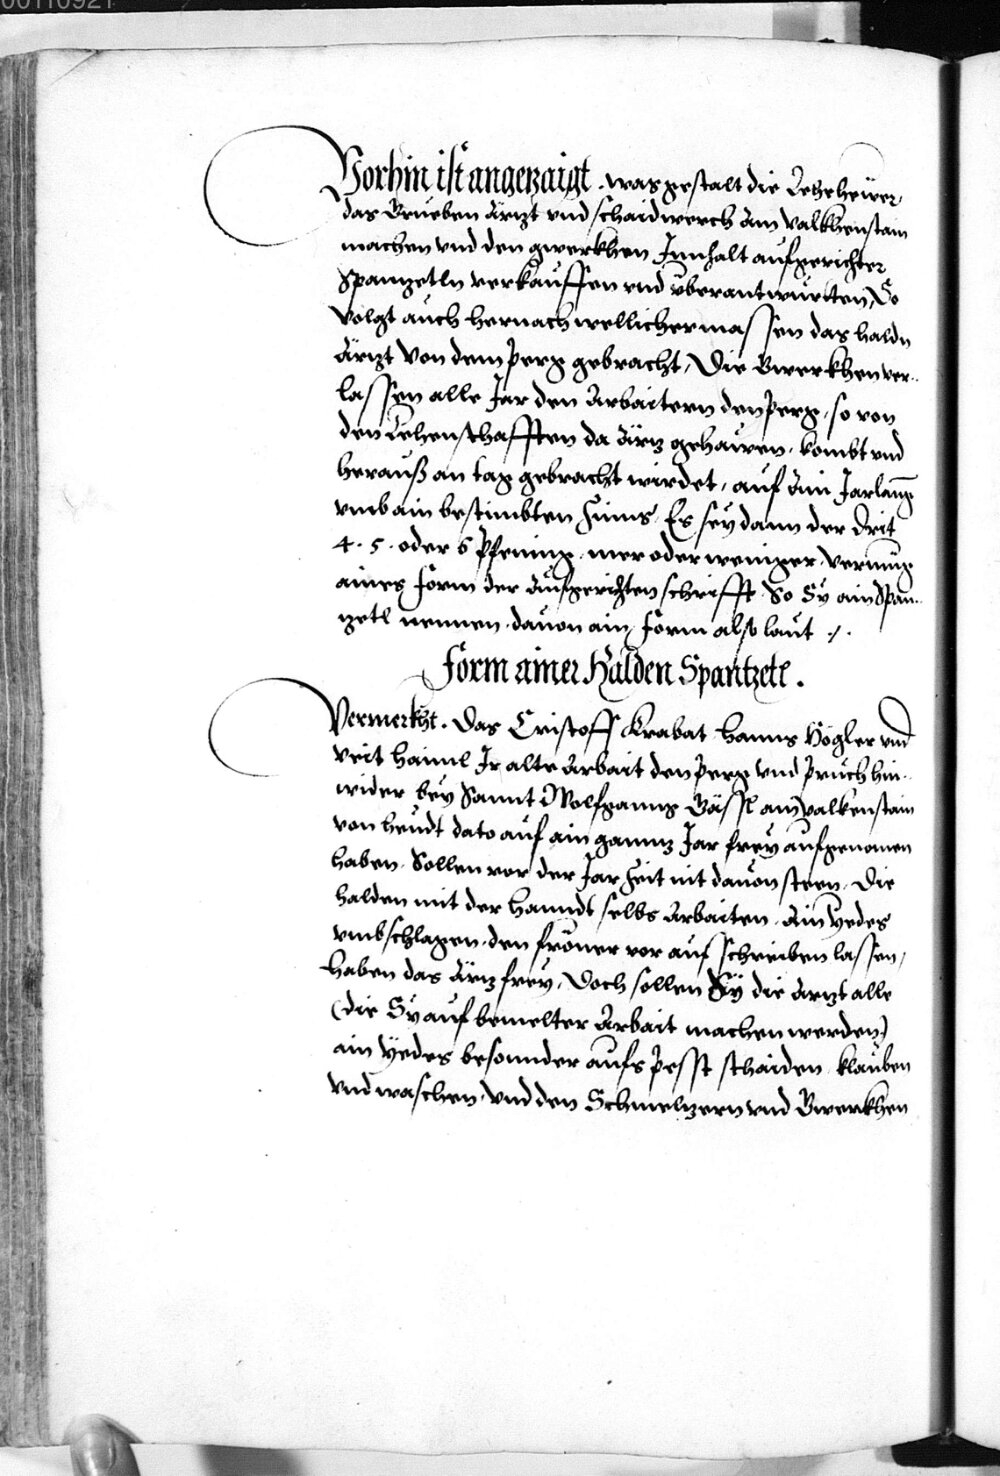 00110921
Vorhin ist angezaigt. was gestalt die Lehenhewer
das Grueben Ärtzt vnd schaidwerch Am Valkhenstain
machen vnd den gwerkhen Innhalt aufgerichter
Spanzetln verkauffen vnd vberantwurtten, So
volgt auch hernach wellichermassen das haldn
Ärtzt Von dem perg gebracht, Die Gwerkhen ver-
lassen alle Jar den Arbaitern den perg, so von
den Lehenschafften da ärtz gehauen, kombt vnd
herauß an tag gebracht wirdet, auf Ain Jarlang
vmb ain bestimbten Zinns, Es sey dann der drit
4. 5. oder 6 pfening, mer oder weniger, vermüg
aines form der Aufgerichten schrifft, So Sy ain Span-
zetl nennen, dauon ain form also laut ./.
Form ainer Halden Spantzetl.
Vermerkht. Das Cristoff Krabat hanns Högler vnd
veit haiml Ir alte Arbait den perg vnd pruch hin-
wider bey Sannt Wolfganng Gässl am valkenstain
von heudt dato auf ain gannz Jar frey aufgenomen
haben. Sollen vor der Jar Zeit nit dauon steen. Die
halden mit der hanndt selbs Arbaiten. Ain yedes
vmbschlagen, den fröner vor aufschreiben lassen,
haben das Ärtz frey, Doch sollen Sy die Artzt alle
(die Sy auf bemelter Arbait machen werden)
ain yedes besonnder aufs pesst schaiden, klauben
vnd waschen, vnd den Schmelzern vnd Gwerkhen